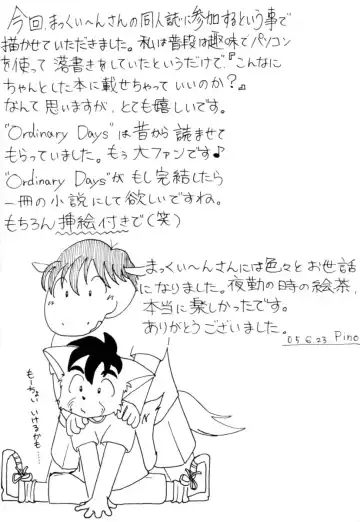 今回、まっくい〜んさんの同人誌に参加するという事で
描かせていただきました。私は普段は趣味でパソコン
を使って落書きをしていたというだけで、『こんなに
ちゃんとした本に載せちゃっていいのか？』
なんて思いますが、とても嬉しいです。
"Ordinary Days"は昔から読ませて
もらっていました。もう大ファンです♪
"Ordinary Days"がもし完結したら
一冊の小説にして欲しいですね。
もちろん挿絵付きで(笑)
まっくい〜んさんには色々とお世話
になりました。夜勤の時の絵茶、
本当に楽しかったです。
ありがとうございました。
05.6.23 Pino
もーちょい
いけるかも…